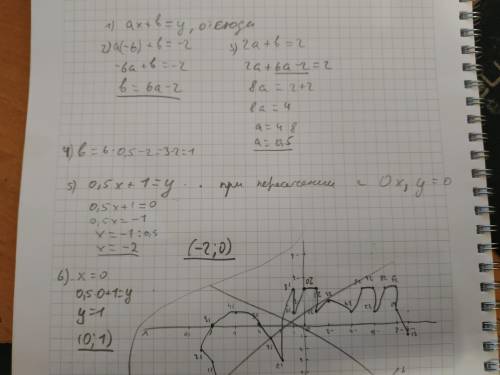 1) ax+b=y, отсюда
2) a(-6)+b=-2
-6a+b=-2
b=6a-2
3) 2a+b=2
2a+6a-2=2
8a=2+2
8a=4
a=4:8
a=0,5
4) b=6·0,5-2=3-2=1
5) 0,5x+1=y при пересечении с Ox, y=0
0,5x+1=0
0,5x=-1
x=-1:0,5
x=-2
(-2;0)
6) x=0
0,5·0+1=y
y=1
(0;1)